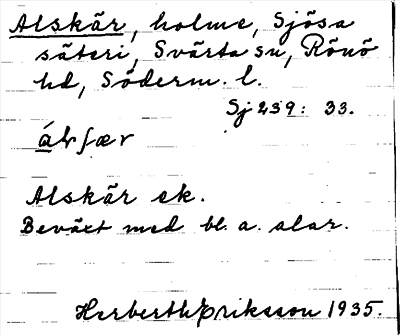 Alskär, holme, Sjösa
säteri, Svärta sn, Rönö
hd, Söderm. l.
Sj 239: 33.
Alskär ek.
Beväxt med bl. a. alar.
Herberth Eriksson 1935.